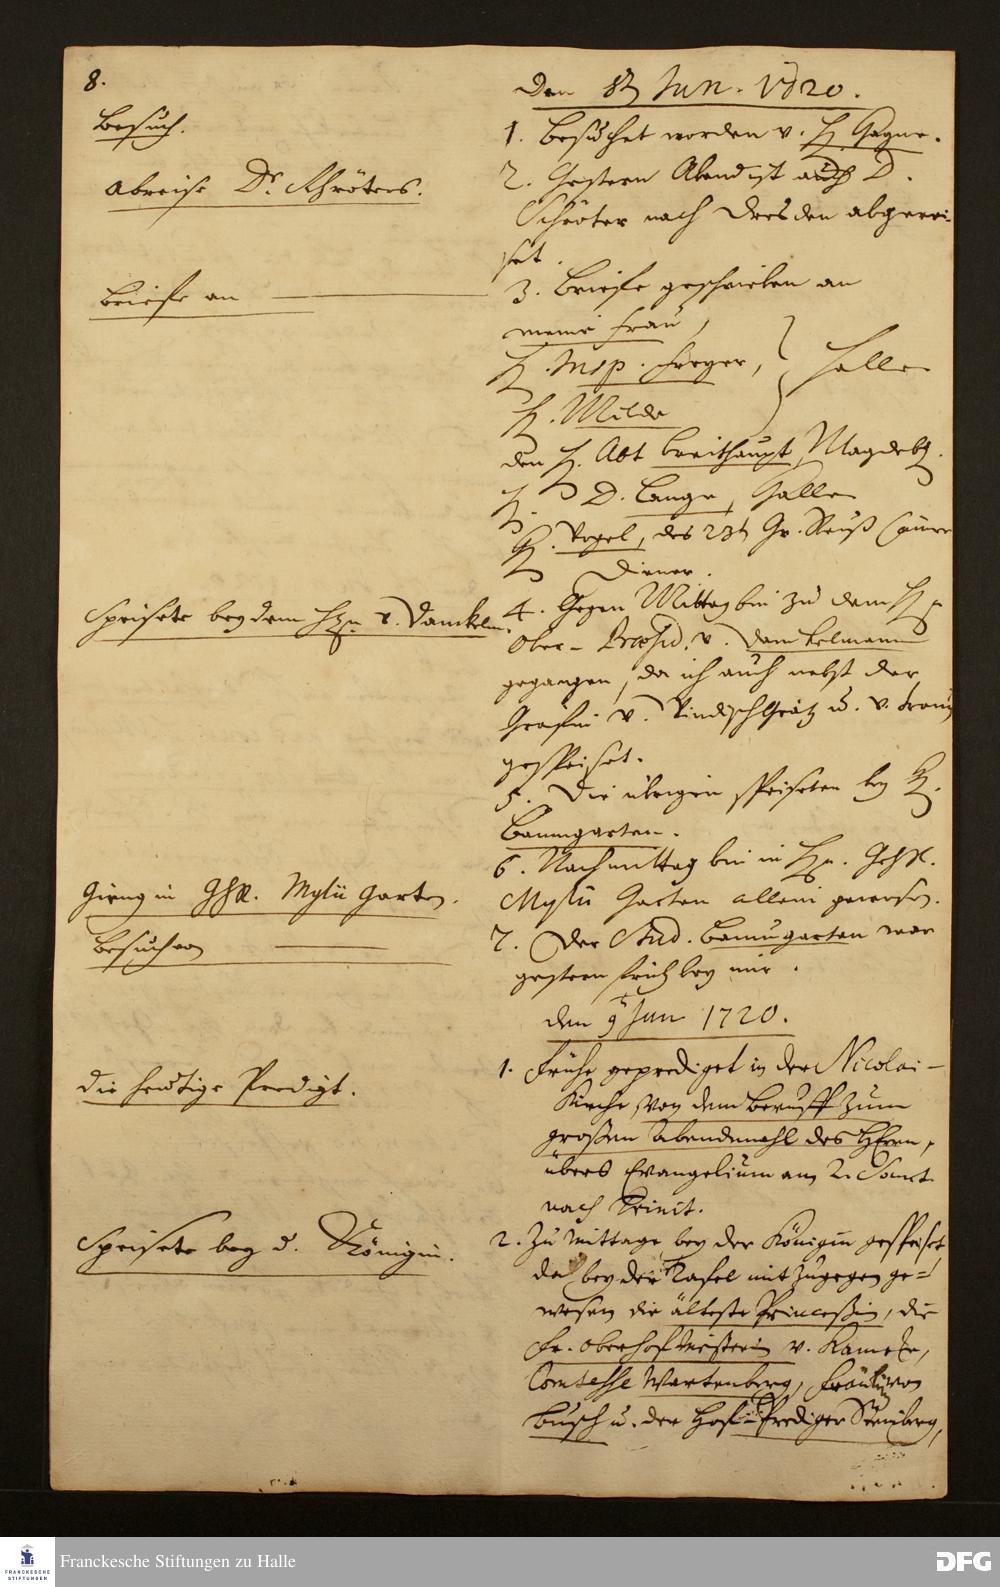 8.
Besuch.
Abreise Dr. Schröters.
Briefe an
Speisete bey dem Hrn. v. Danckelm.
Gieng in GhR. Mylii Garten.
Besuch von
die heutige Predigt.
Speisete bey d. Königin.
Den 8t Jun. 1720.
1. Besuchet worden v. H. Gagne.
2. Gestern Abend ist auch D.
Schröter nach Dresden abgerei-
set.
3. Briefe geschrieben an
meine Frau,
H. Insp. Freyer, Halle
H. Milde
den H. Abt Breithaupt, Magdeb.
H. D. Lange, Halle
H. Vogel, des 23t Gr. Reuß
Diener.
4. Gegen Mittag bin zu dem H.
Ober-Præsid. v. Dankelmann
gegangen, da ich auch nebst der
Gräfin v. Windischgrätz u. v.
gespeiset.
5. Die übrigen speiseten bey H.
Baumgarten.
6. Nachmittag bin in Hrn. GehR.
Mylii Garten allein gewesen.
7. Der Stud. Baumgarten war
gestern früh bey mir.
den 9t Jun 1720.
1. Frühe geprediget in der Nicolai-
Kirche, von dem Beruff zum
großen Abendmahl des HErrn,
übers Evangelium am 2. Sont.
nach Trinit.
2. Zu Mittage bey der Königin gespeiset,
da bey der Tafel mit zugegen ge-
wesen die älteste Princeßin, die
Fr. Oberhofmeisterin v. Kameke,
Comtesse Wartenberg, Fräulein von
Busch u. der Hof-Prediger
Franckesche Stiftungen zu Halle
FRANCKESCHE
STIFTUNGEN
DFG